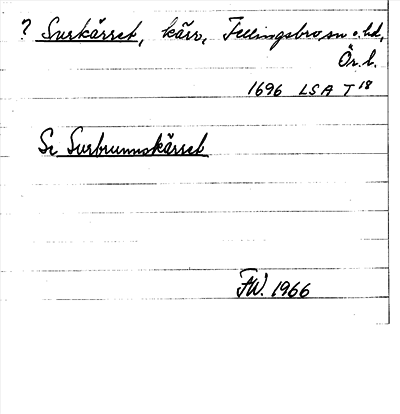 ? Surkärret, kärr, Fellingsbro sn o. hd,
Ör. l.
1696 LSA T 18
Se Surbrunnskärret
FW. 1966